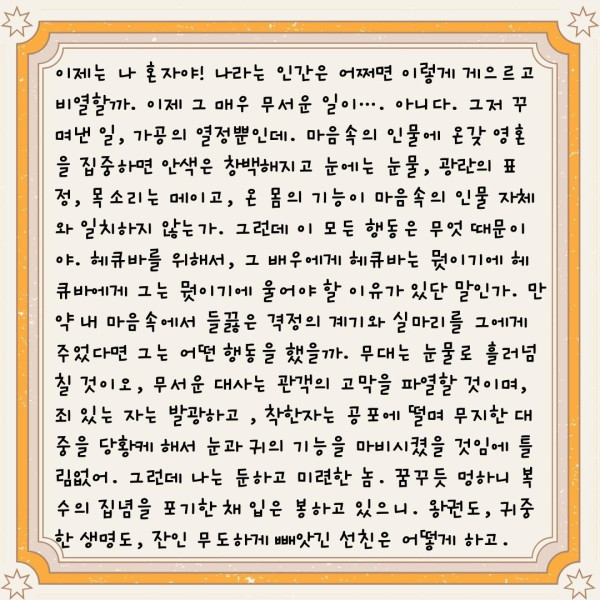 이제는 나 혼자야! 나라는 인간은 어쩌면 이렇게 게으르고
비열할까. 이제 그 매우 무서운 일이…. 아니다. 그저 꾸
며낸 일, 가공의 열정뿐인데. 마음속의 인물에 온갖 영혼
을 집중하면 안색은 창백해지고 눈에는 눈물, 광란의 표
정, 목소리는 메이고, 온 몸의 기능이 마음속의 인물 자체
와 일치하지 않는가. 그런데 이 모든 행동은 무엇 때문이
야. 헤큐바를 위해서, 그 배우에게 헤큐바는 뭣이기에 헤
큐바에게 그는 뭣이기에 울어야 할 이유가 있단 말인가. 만
약 내 마음속에서 들끓은 격정의 계기와 실마리를 그에게
주었다면 그는 어떤 행동을 했을까. 무대는 눈물로 흘러넘
칠 것이오, 무서운 대사는 관객의 고막을 파열할 것이며,
죄 있는 자는 발광하고 , 착한자는 공포에 떨며 무지한 대
중을 당황케 해서 눈과 귀의 기능을 마비시켰을 것임에 틀
림없어. 그런데 나는 둔하고 미련한 놈. 꿈꾸듯 멍하니 복
수의 집념을 포기한 채 입은 봉하고 있으니. 왕권도, 귀중
한 생명도, 잔인 무도하게 빼앗긴 선친은 어떻게 하고.